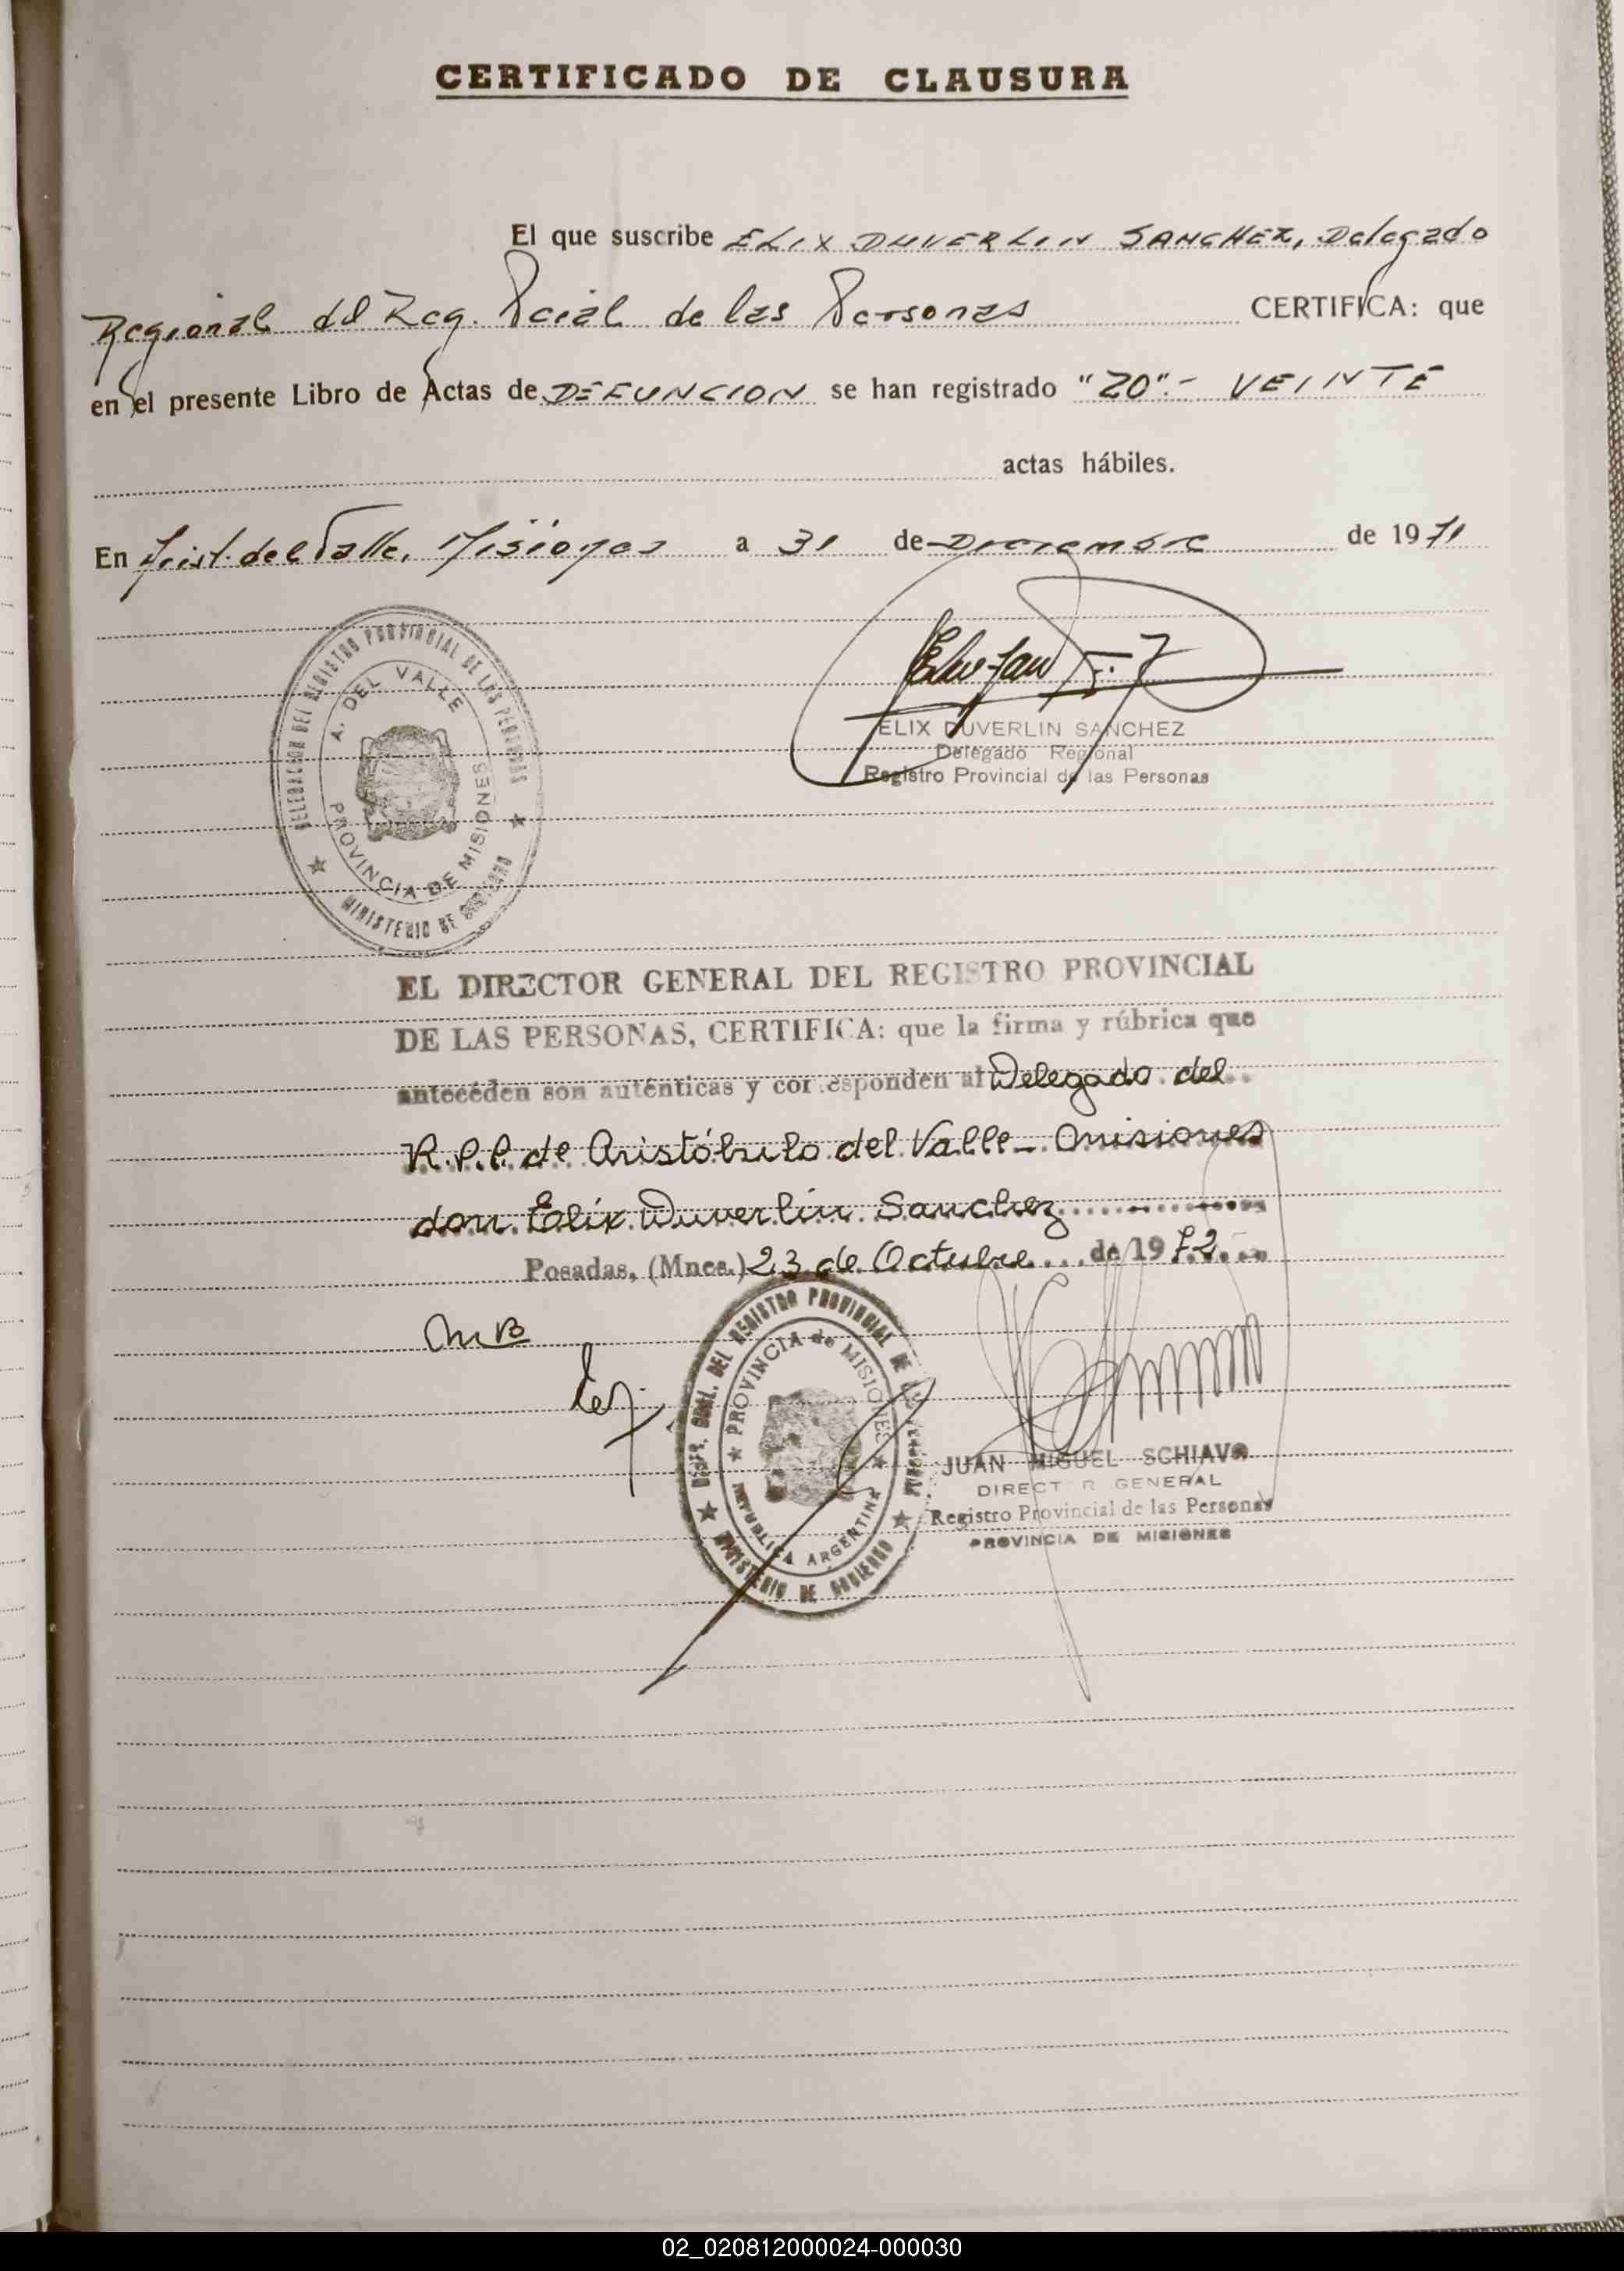 CERTIFICADO DE CLAUSURA
El que suscribe ELIX DUVERLIN SANCHEZ, Delegado
Regional del Reg. Pcial de las Personas CERTIFICA: que
en el presente Libro de Actas de DEFUNCION se han registrado "20".- VEINTE
actas hábiles.
En Arist. del Valle, Misiones a 31 de Diciembre de 1971
DELEGACION DEL REGISTRO PROVINCIAL DE LAS PERSONAS
A. DEL VALLE
PROVINCIA DE MISIONES
MINISTERIO DE GOBIERNO
ELIX DUVERLIN SANCHEZ
Delegado Regional
Registro Provincial de las Personas
EL DIRECTOR GENERAL DEL REGISTRO PROVINCIAL
DE LAS PERSONAS, CERTIFICA: que la firma y rúbrica que
anteceden son auténticas y corresponden al Delegado del
R.P.P. de Aristóbulo del Valle - Misiones
don Elix Duverlin Sanchez
Posadas, (Mnes.) 23 de Octubre de 1972
MB
DIREC. GRAL. DEL REGISTRO PROVINCIAL DE LAS PERSONAS
PROVINCIA de MISIONES
REPUBLICA ARGENTINA
MINISTERIO DE GOBIERNO
JUAN MIGUEL SCHIAVO
DIRECT R GENERAL
Registro Provincial de las Personas
PROVINCIA DE MISIONES
02_020812000024-000030